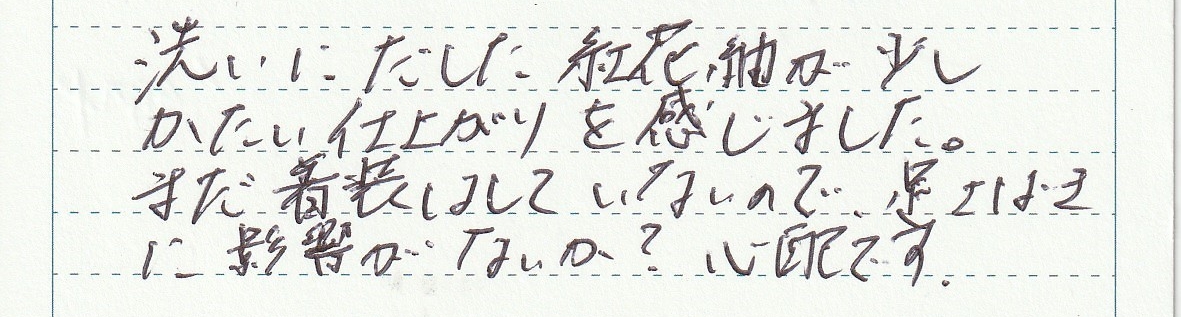 洗いにだした紅花紬が少し
かたい仕上がりを感じました。
まだ着装はしていないので、足さばき
に影響がないか?心配です.